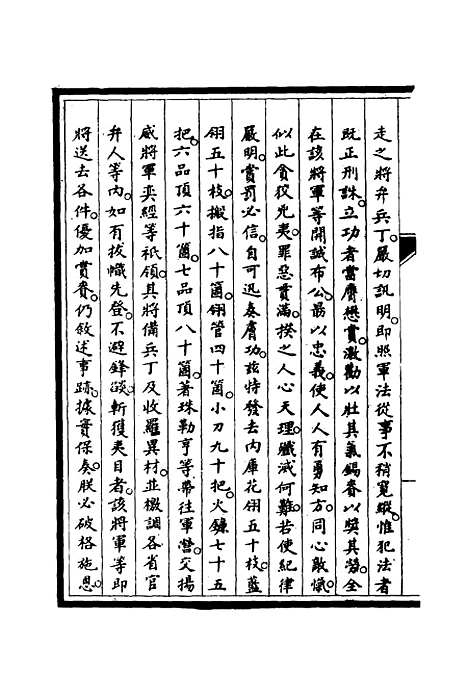 走之將弁兵丁。嚴切訊明。即照軍法從事。不稍寬縱。惟犯法者
既正刑誅。立功者當膺懋賞。激勸以壯其氣。錫賚以獎其勞。全
在該將軍等開誠布公。勗以忠義。使人人有勇知方。同心敵愾。
似此貪狡兇夷。罪惡貫滿。揆之人心天理。殲滅何難。若使紀律
嚴明。賞罰必信。自可迅奏膚功。茲特發去內庫花翎五十枝。藍
翎五十枝。搬指八十箇。翎管四十箇。小刀九十把。火鐮七十五
把。六品頂六十箇。七品頂八十箇。著珠勒亨等帶往軍營。交揚
威將軍奕經等祇領。其將備兵丁及收羅異材。並檄調各省官
弁人等內。如有拔幟先登。不避鋒燄。斬獲夷目者。該將軍等即
將送去各件。優加賞賚。仍敘述事蹟。據實保奏。朕必破格施恩。